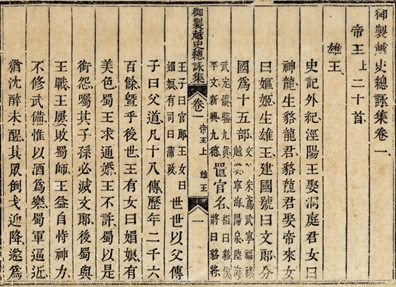 御製越史總詠集卷一
帝王上二十首
雄王
史記外紀涇陽王娶洞庭君女曰
神龍生貉龍君貉龍君娶帝來女
曰嫗姬生雄王建國號曰文郎分
國爲十五部交趾朱鳶武寧福祿越裳寧海陽泉陸海
武定懷驩九真平文新興九德置官名相曰貉侯將曰貉將
御製越史總詠集 卷一 帝王上 雄王 一
王子曰官郎王女曰媚娘有司曰蒲政世世以父傳
子曰父道凡十八傳歷年二千六
百餘暨乎後世王有女曰媚娘有
美色蜀王求通婚王不許蜀以是
銜怨囑其子孫必滅文郎後蜀與
王戰王屢敗蜀師王益自恃神力
不修武備惟以酒爲樂蜀軍逼近
猶沈醉未醒其眾倒戈迎降遂爲